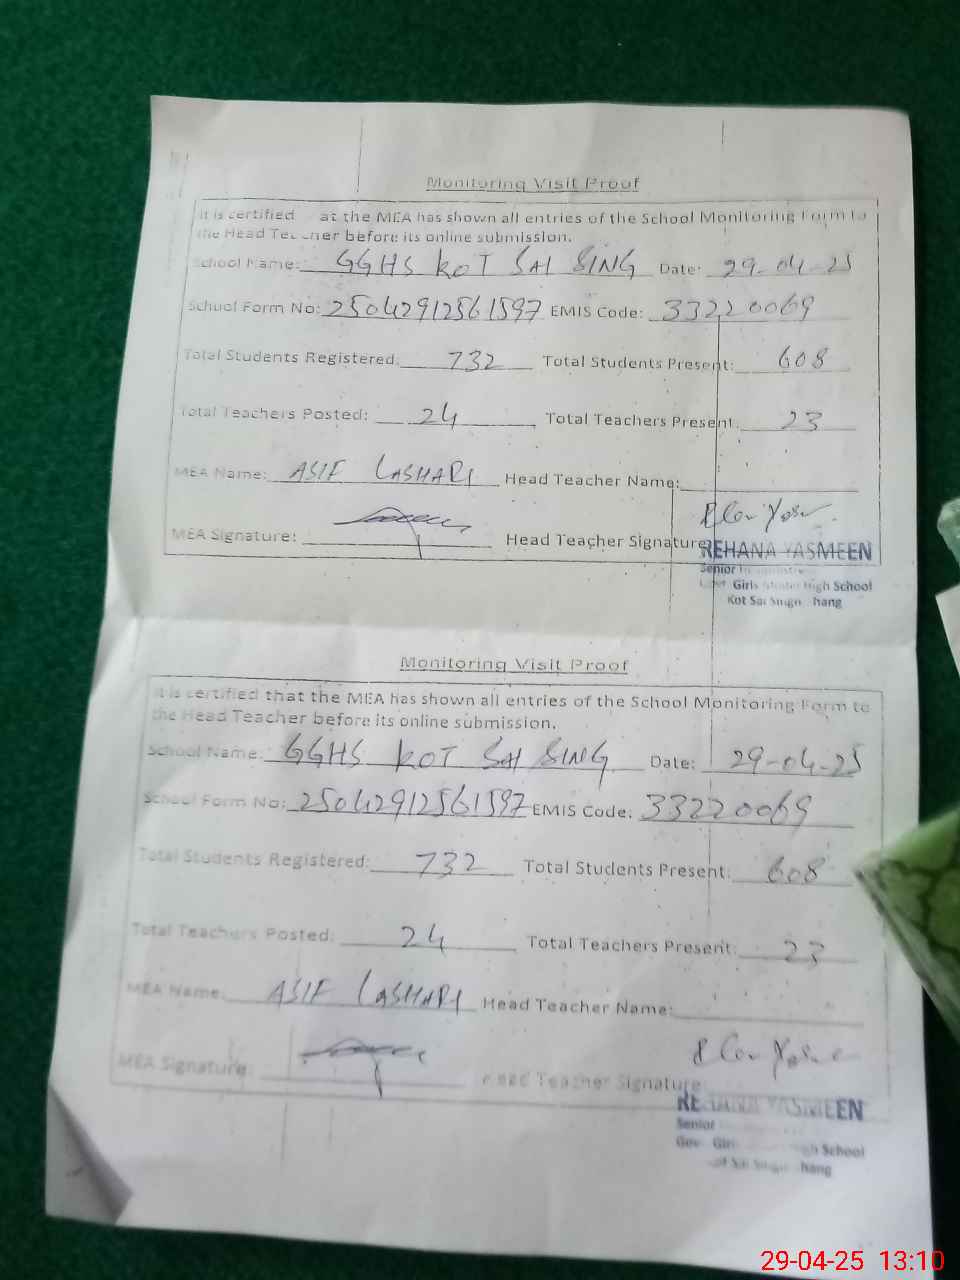 Monitoring Visit Proof
It is certified at the MEA has shown all entries of the School Monitoring Form to
the Head Teacher before its online submission.
School Name: GGHS KOT SAI SING Date: 29-04-25
School Form No: 25042912561597 EMIS Code: 33220069
Total Students Registered: 732 Total Students Present: 608
Total Teachers Posted: 24 Total Teachers Present: 23
MEA Name: ASIF LASHARI Head Teacher Name:
MEA Signature: Head Teacher Signature
REHANA YASMEEN
Senior
Girls High School
Kot Sai Singh hang
Monitoring Visit Proof
It is certified that the MEA has shown all entries of the School Monitoring Form to
the Head Teacher before its online submission.
School Name: GGHS KOT SAI SING Date: 29-04-25
School Form No: 25042912561597 EMIS Code: 33220069
Total Students Registered: 732 Total Students Present: 608
Total Teachers Posted: 24 Total Teachers Present: 23
MEA Name: ASIF LASHARI Head Teacher Name:
MEA Signature: Head Teacher Signature
REHANA YASMEEN
Senior
School
hang
29-04-25 13:10